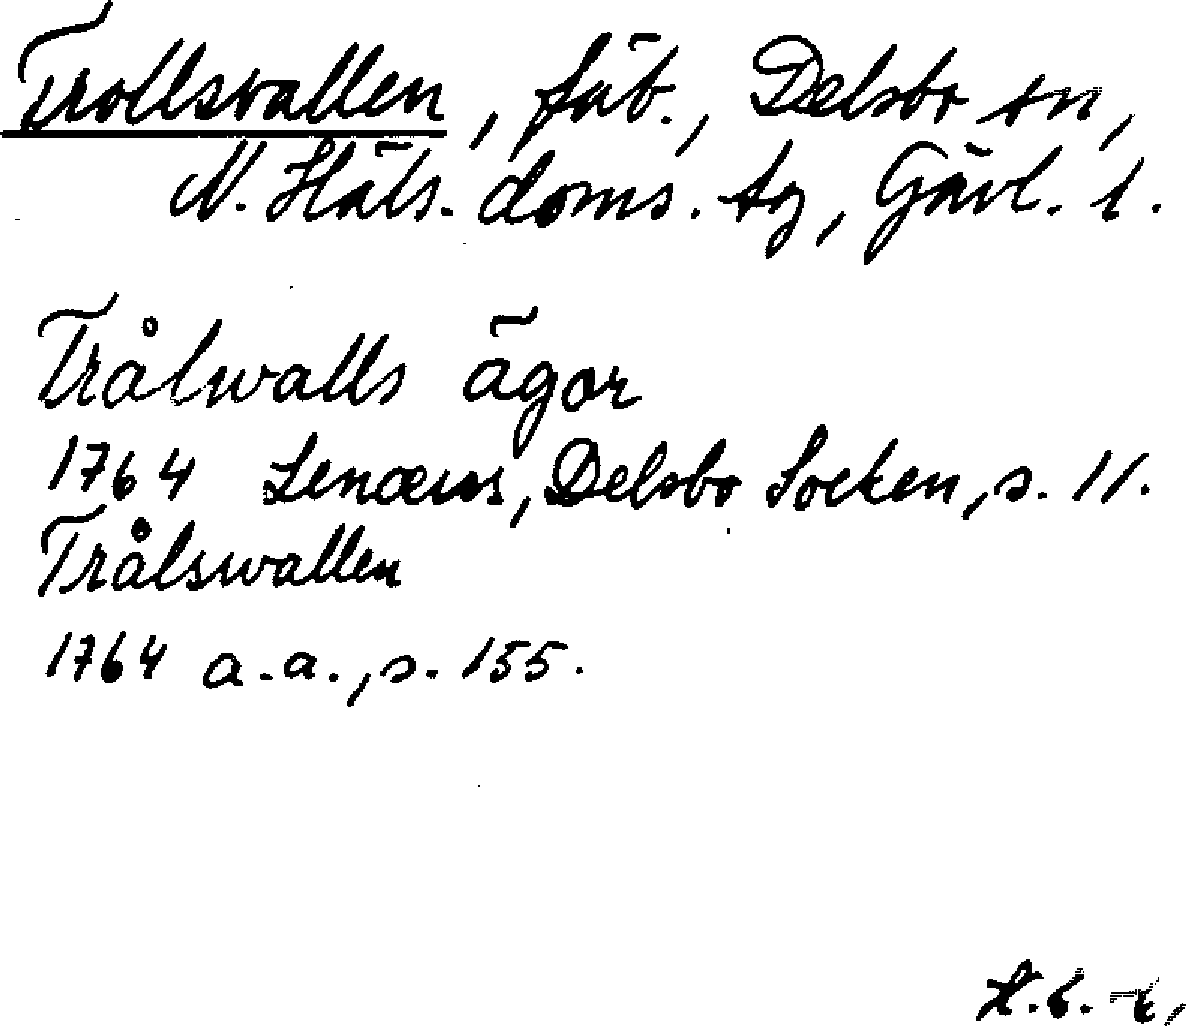 Trollsvallen, fäb., Delsbo sn,
N. Häls. doms. tg, Gävl. l.
Trålwalls ägor
1764 Lenæus, Delsbo Socken, s. 11.
Trålswallen
1764 a.a., s. 155.